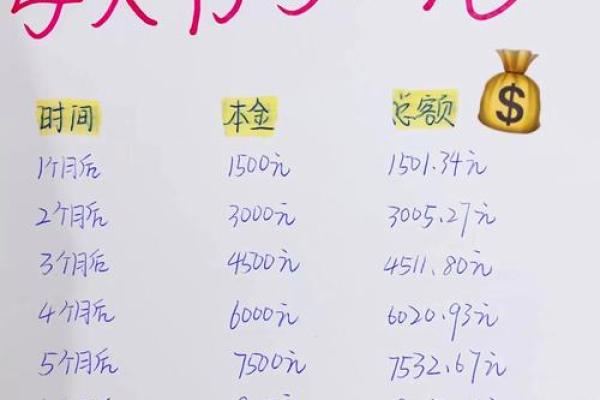 时间 本金 总额
1个月后 1500元 1501.34元
2个月后 3000元 3005.27元
3个月后 4500元 4511.80元
4个月后 6000元 6020.93元
5个月后 7500元 7532.67元